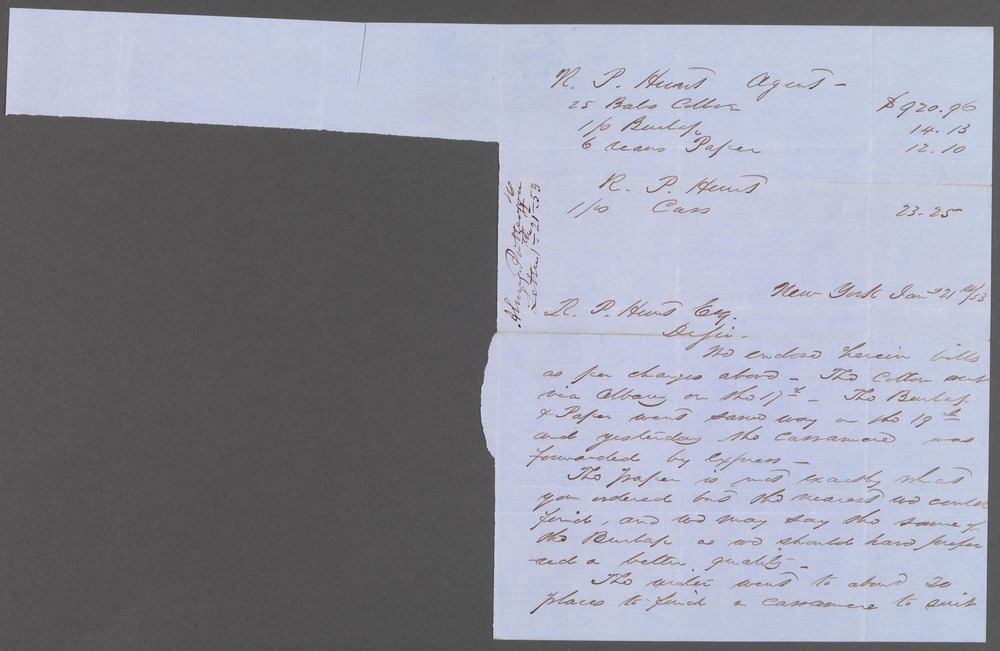 R. P. Hunt Agent -
25 Bals Cotton $920.96
1/ps Burlap 14.13
6 reams Paper 12.10
R. P. Hunt
1/ps Cass 23.25
New York Jan 21 st/53
R. P. Hunt Esq.
D Sir -
We enclose herein bills
as per charges above - The Cotton went
via Albany on the 17th - The Burlap
& Paper went same way on the 19th
and yesterday the cassamere was
forwarded by Express -
The paper is not exactly what
you ordered but the nearest we could
find, and we may say the same of
the Burlap as we should have prefer
red a better quality -
The writer went to about 20
places to find a cassamere to suit
16
Letter 1-21-53